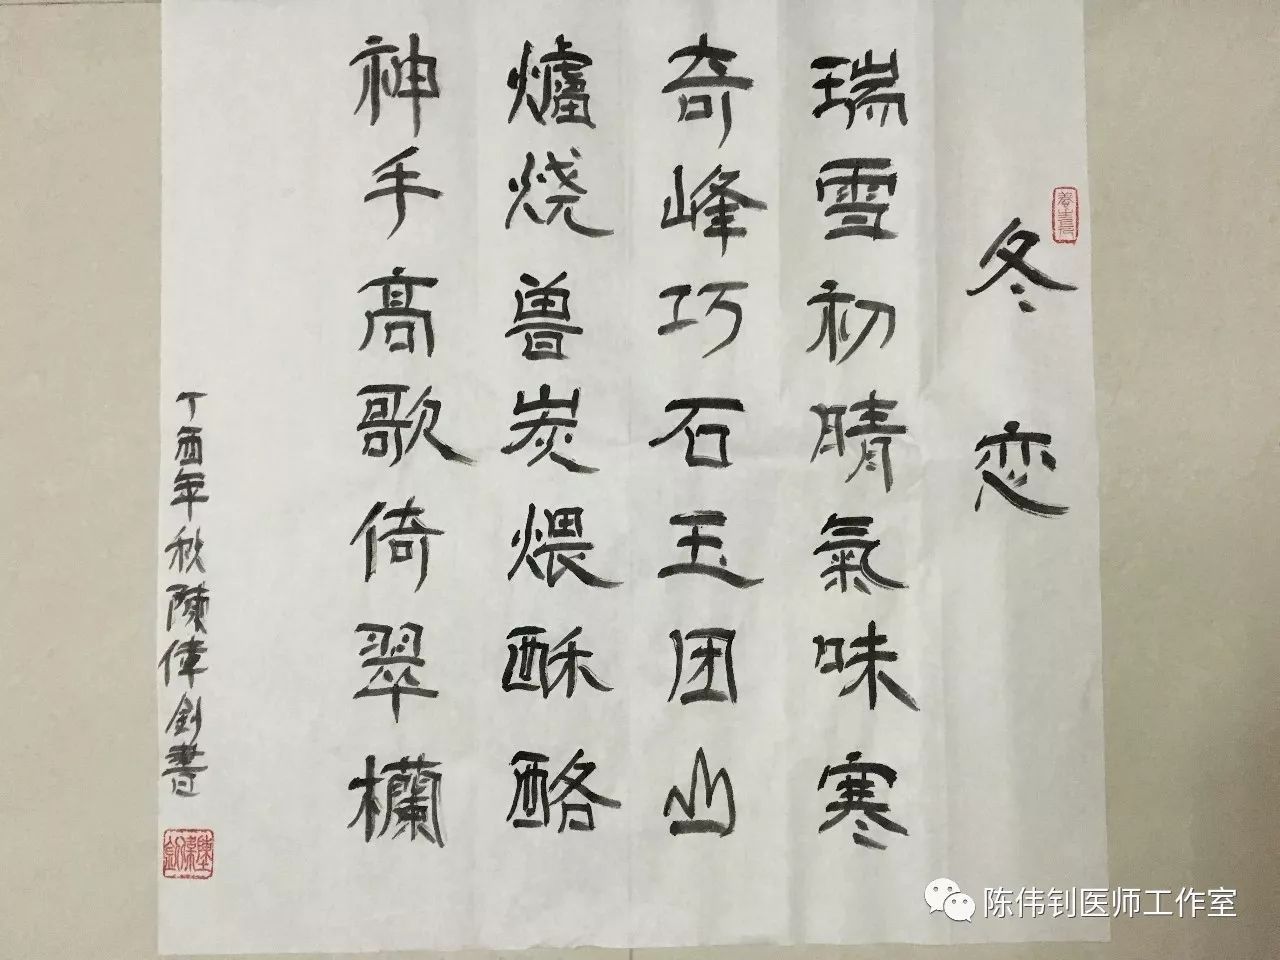 冬恋
瑞雪初晴氣味寒
奇峰巧石玉团山
爐烧兽炭煨酥酪
神手高歌倚翠欄
丁酉年秋陳偉釗書
陈伟钊医师工作室